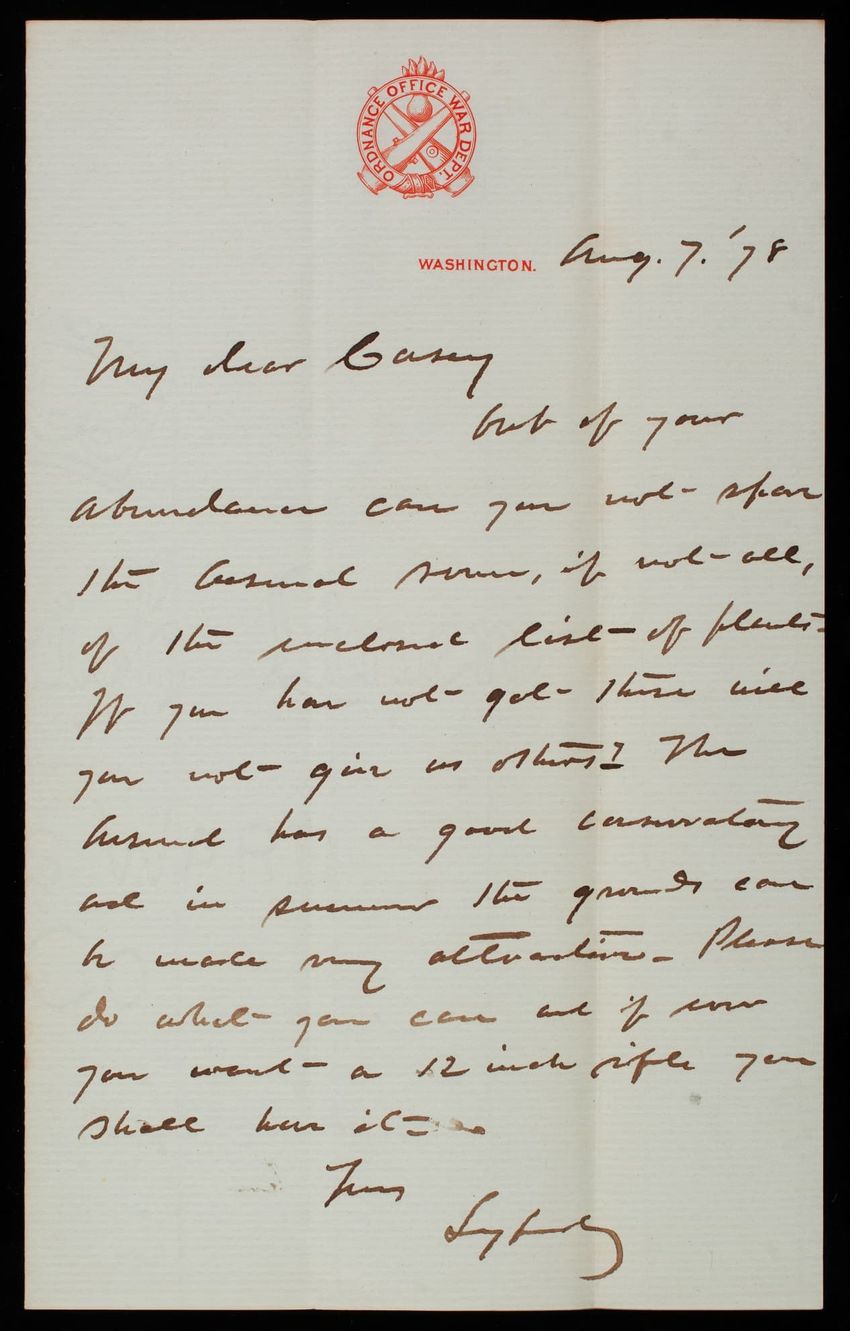 ORDNANCE OFFICE WAR DEPT.
WASHINGTON. Aug. 7. '78
My dear Casey
Out of your
abundance can you not spare
the Arsenal some, if not all,
of the enclosed list of plants.
If you have not got these will
you not give us others? The
Arsenal has a good conservatory
and in summer the grounds can
be made very attractive. Please
do what you can and if ever
you want a 12 inch rifle you
shall have it.
Yours